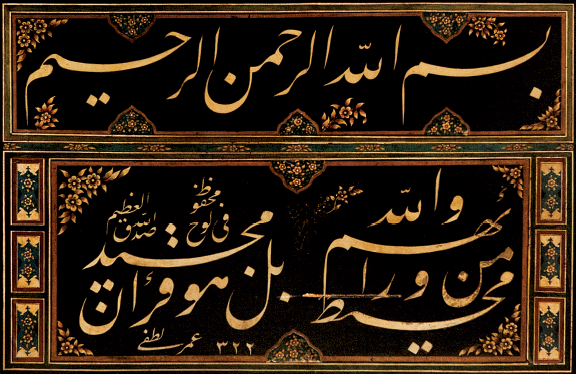 بسم الله الرحمن الرحيم
والله من ورائهم محيط
بل هو قرآن مجيد
في لوح محفوظ
صدق الله العظيم
عمر لطفي ٣٢٢